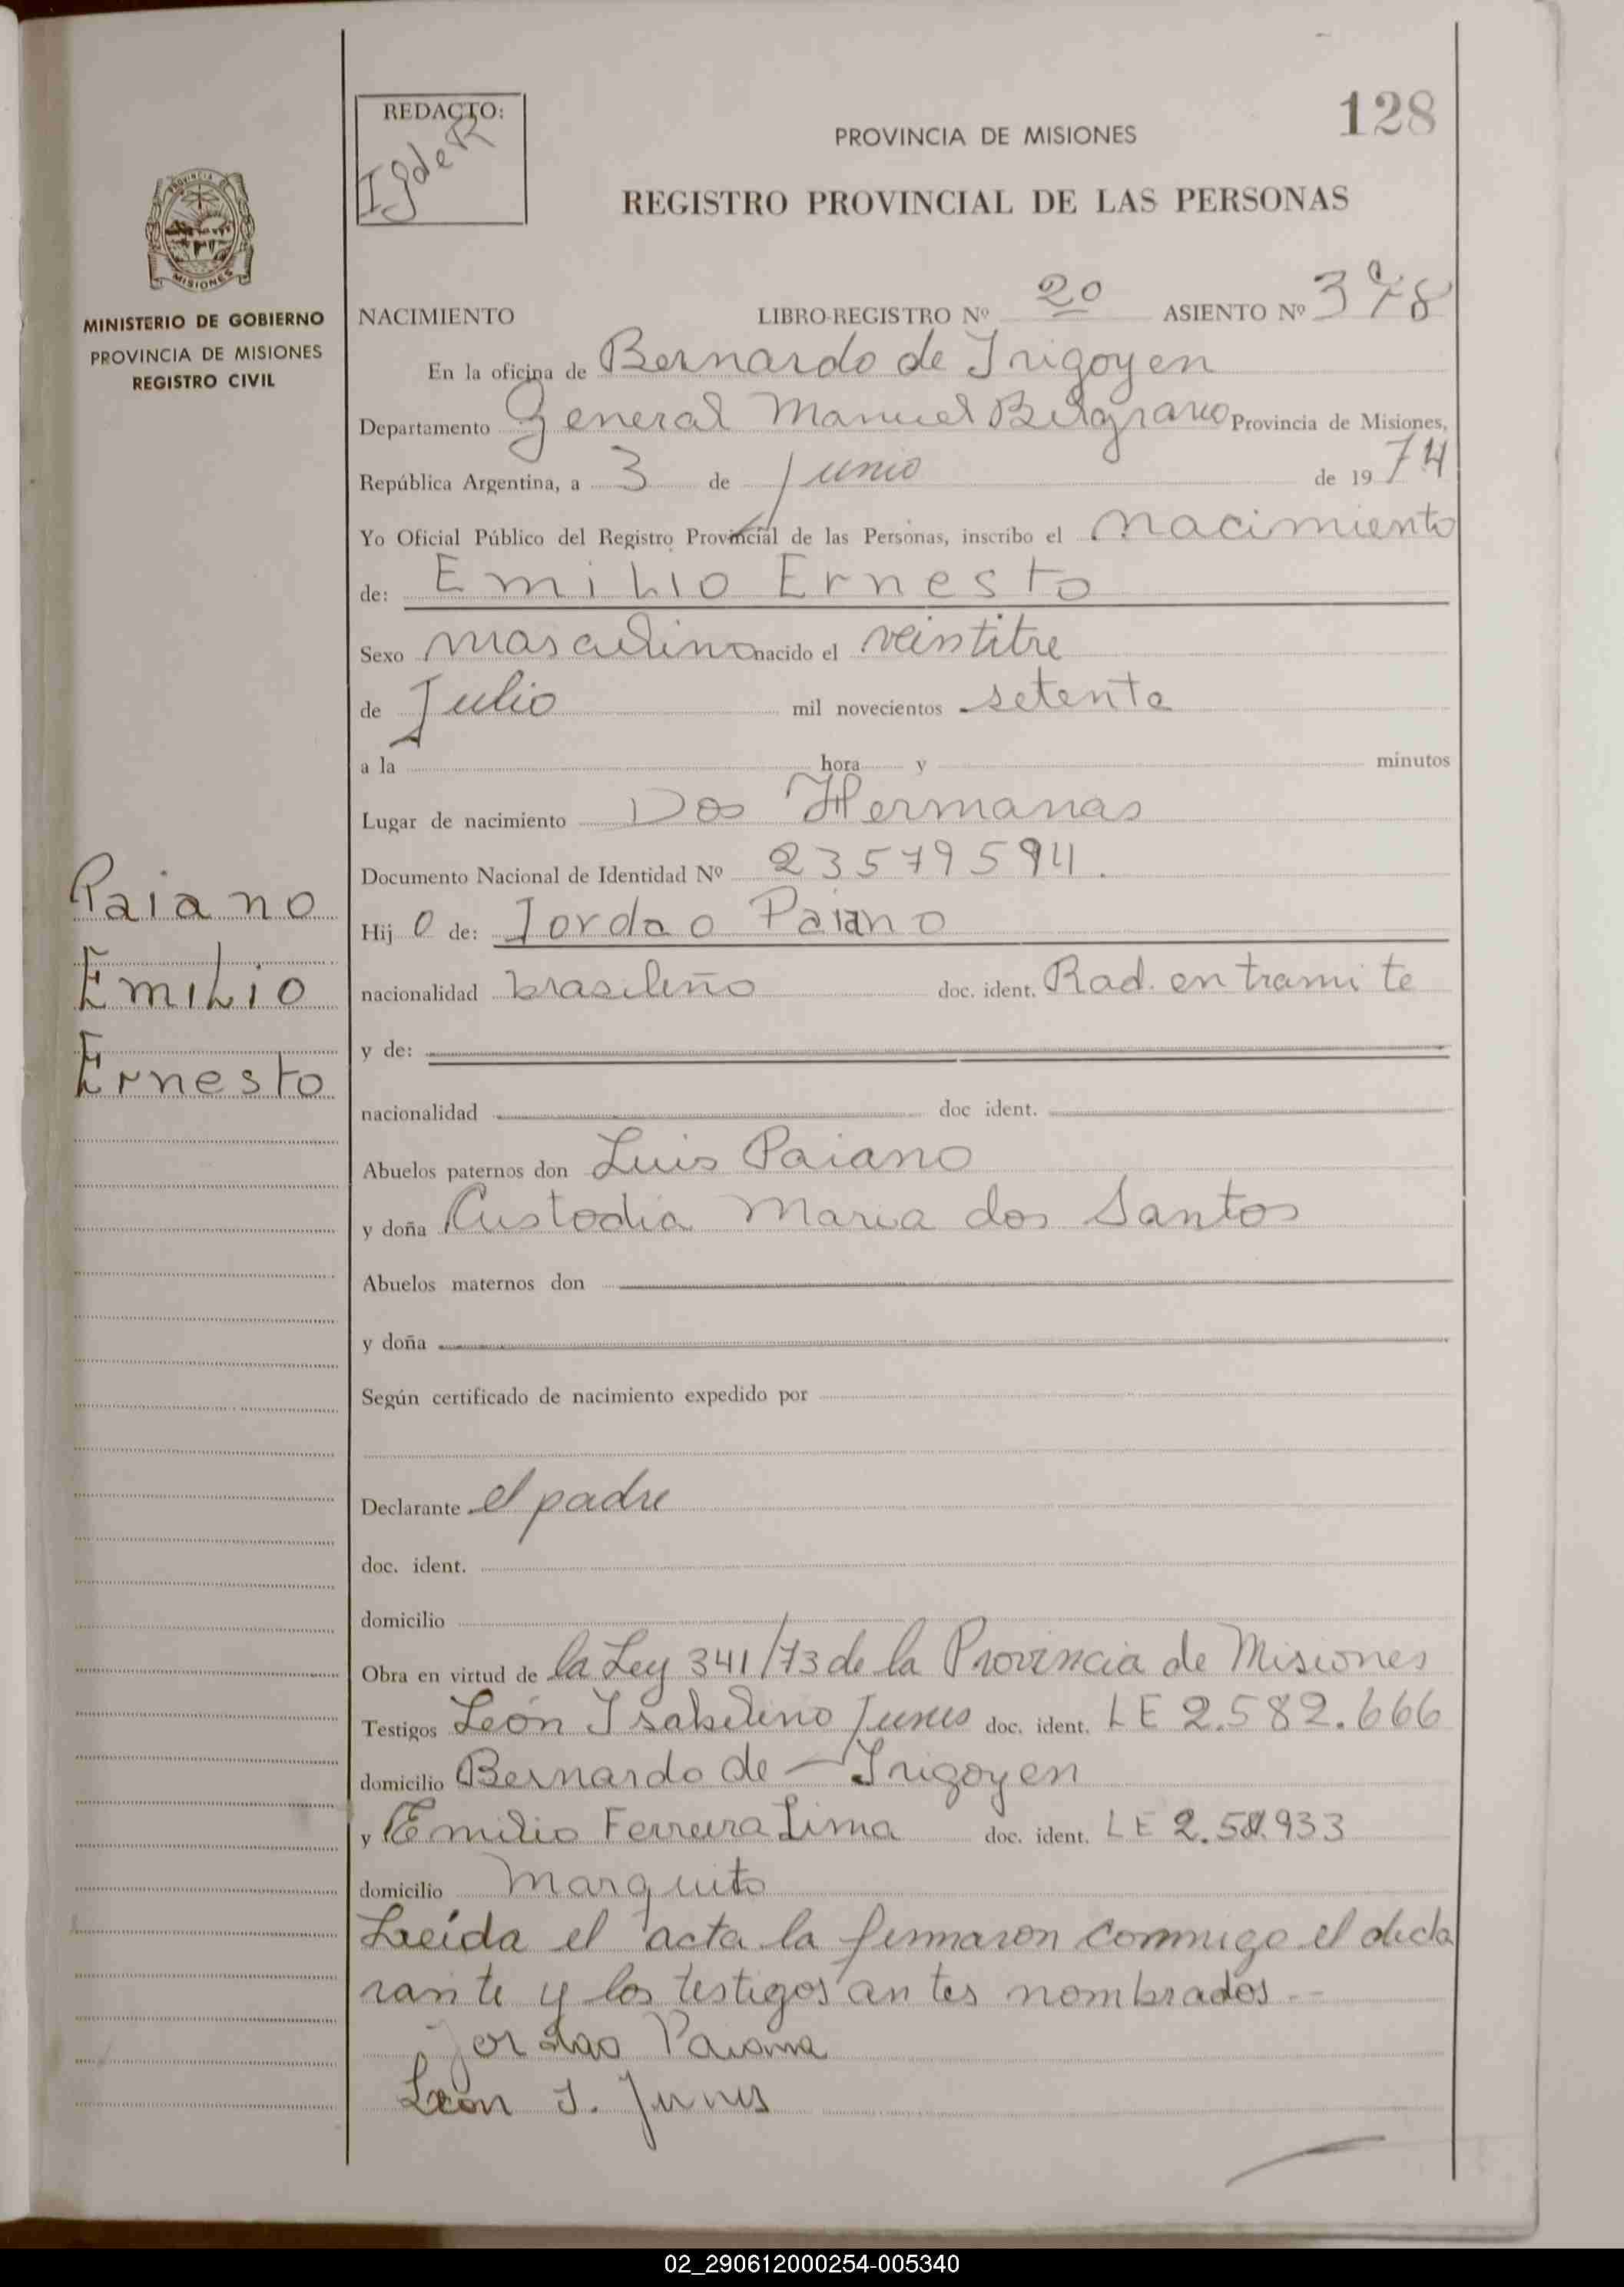 128
REDACTO:
PROVINCIA DE MISIONES
REGISTRO PROVINCIAL DE LAS PERSONAS
PROVINCIA
MISIONES
MINISTERIO DE GOBIERNO
PROVINCIA DE MISIONES
REGISTRO CIVIL
NACIMIENTO LIBRO-REGISTRO Nº 20 ASIENTO Nº 378
En la oficina de Bernardo de Irigoyen
Departamento General Manuel Belgrano Provincia de Misiones,
República Argentina, a 3 de Junio de 1974
Yo Oficial Público del Registro Provincial de las Personas, inscribo el nacimiento
de: Emilio Ernesto
Sexo masculino nacido el veintitre
de Julio mil novecientos setenta
a la hora y minutos
Lugar de nacimiento Dos Hermanas
Documento Nacional de Identidad Nº 23579594.
Paiano
Emilio
Ernesto
Hijo de: Jordao Paiano
nacionalidad brasileño doc. ident. Rad. en tramite
y de:
nacionalidad doc ident.
Abuelos paternos don Luis Paiano
y doña Custodia Maria dos Santos
Abuelos maternos don
y doña
Según certificado de nacimiento expedido por
Declarante el padre
doc. ident.
domicilio
Obra en virtud de la Ley 341/73 de la Provincia de Misiones
Testigos León Isabelino Junes doc. ident. LE 2.582.666
domicilio Bernardo de Irigoyen
y Emilio Ferreira Lima doc. ident. LE
domicilio Marquito
Leída el acta la firmaron conmigo el decla
rante y los testigos antes nombrados
Jordao
Leon I.
02_290612000254-005340